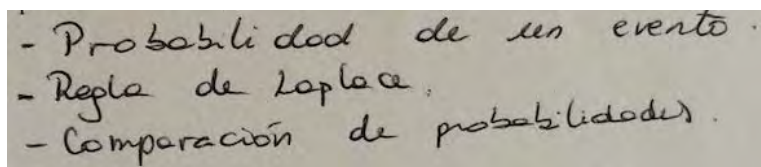 - Probabilidad de un evento.
- Regla de Laplace.
- Comparación de probabilidades.